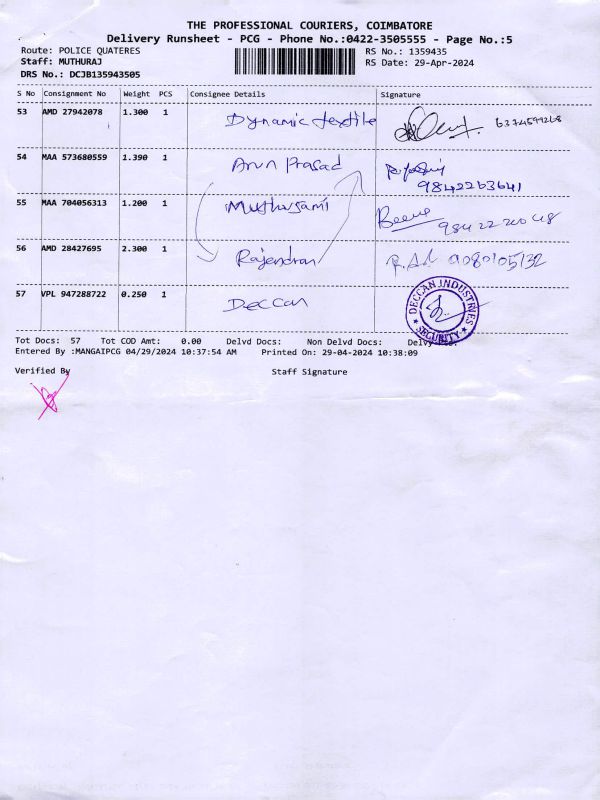 THE PROFESSIONAL COURIERS, COIMBATORE
Delivery Runsheet - PCG - Phone No.:0422-3505555 - Page No.:5
Route: POLICE QUATERES RS No.: 1359435
Staff: MUTHURAJ RS Date: 29-Apr-2024
DRS No.: DCJB135943505
S No Consignment No Weight PCS Consignee Details Signature
53 AMD 27942078 1.300 1 Dynamic textile
54 MAA 573680559 1.390 1 Arun Prasad
9842263641
55 MAA 704056313 1.200 1 Muthusami
56 AMD 28427695 2.300 1 Rajendran 9080105132
57 VPL 947288722 0.250 1 Deccan
DECCAN INDUSTRIES
★ SECURITY ★
Tot Docs: 57 Tot COD Amt: 0.00 Delvd Docs: Non Delvd Docs:
Entered By :MANGAIPCG 04/29/2024 10:37:54 AM Printed On: 29-04-2024 10:38:09
Verified By Staff Signature